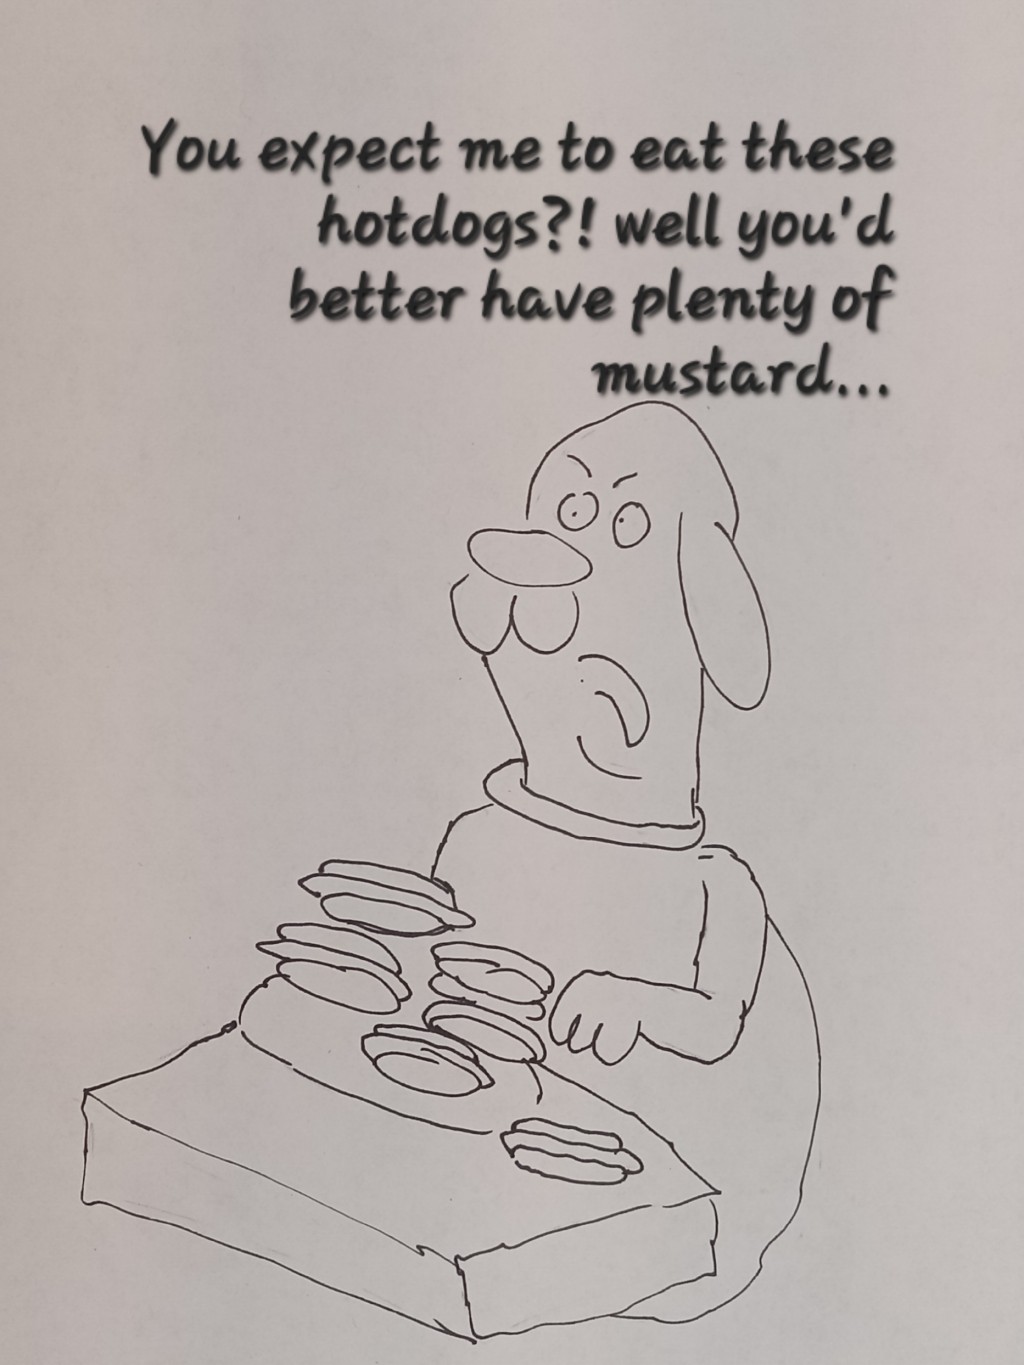 You expect me to eat these
hotdogs?! well you'd
better have plenty of
mustard...